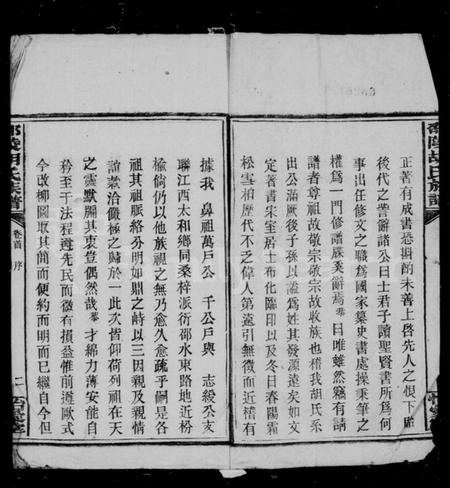 正著有成書恐斟酌未善上啓先人之恨下貽
後代之誉辭諸公曰士君子讀聖賢書所爲何
事出任修文之職爲國家集史書處操秉筆之
權爲一門修譜牒奚辭焉 曰唯雖然竊有請
諸者尊祖故敬宗敬宗故收族也稽我胡氏系
出公滿厥後子孫以謚爲姓其發源遠矣如文
定著書朱室居士布化臨印以及冬日春陽霜
松雪柏歷代不乏偉人第遠引無徵而近稽有
據我 鼻祖萬戶公 千公戶與 志綬公支
聯江西太和鄉同桑梓派衍邵水東路地近枌
榆倘仍以他族祖之無乃愈久愈疏乎嗣是各
祖其祖脈絡分明如鼎之峙以三因親及親情
誼敦洽儼極之歸於一此次皆仰荷列祖在天
之靈默闢其衷豈偶然哉 才綿力薄安能自
矜至于法程遵先民而微有損益惟前遵歐式
今改柳圖取其簡而便約而明而已繼自今但
邵陵胡氏族譜
卷首 序
一